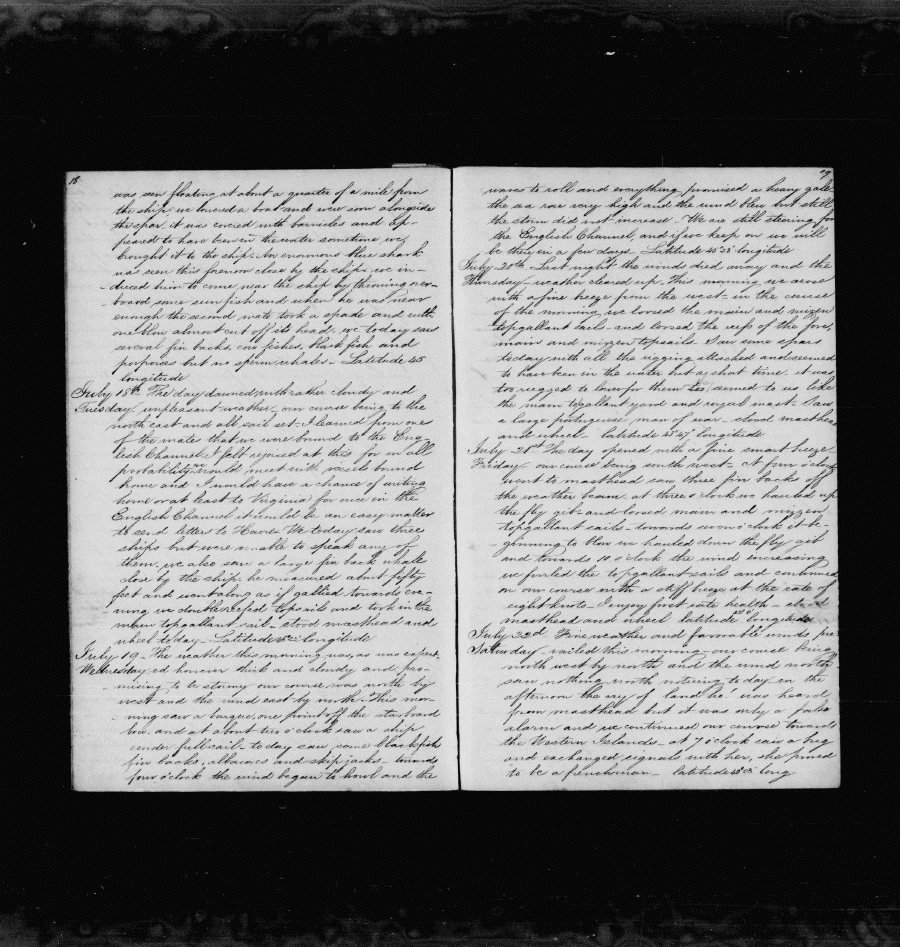 18
was seen floating at about a quarter of a mile from
the ship, we lowered a boat and were soon alongside
the spar, it was covered with barnicles and ap-
peared to have been in the water sometime we
brought it to the ship. An enormous blue shark
was seen this forenoon close by the ship, we in-
-duced him to come near the ship by throwing over-
-board some sun fish and when he was near
enough the second mate took a spade and with
one blow almost cut off its head. we today saw
several fin backs, cow fishes, shark fish and
porpoises but no sperm whales - Latitude 45
longitude
July 18th The day dawned with rather cloudy and
Tuesday unpleasant weather - our course being to the
north east and all sail set - I learned from one
of the mates that we were bound to the Eng-
lish Channel. I felt rejoiced at this for in all
probability we would meet with vessels bound
home and I would have a chance of writing
home or at least to Virginia for once in the
English Channel it would be an easy matter
to send letters to Havre. We today saw three
ships but were unable to speak any of
them, we also saw a large fin back whale
close by the ship. he measured about fifty
feet and went along as if gallied towards eve-
ning we doublereefed topsails and took in the
main topgallant sail - stood masthead and
wheel today - Latitude longitude
July 19 - The weather this morning was, as was expect-
Wednesday ed however thick and cloudy and pro-
-mising to be stormy our course was north by
west and the wind east by north - This mor-
-ning saw a barque, one point off the starboard
bow and at about two o'clock saw a ship
under full sail - to day saw some blackfish
fin backs, albacores and skipjacks - towards
four o'clock the wind began to howl and the
19
waves to roll and everything promised a heavy gale
the sea rose very high and the wind blew but still
the storm did not increase. We are still steering for
the English Channel, and if we keep on we will
be there in a few days - Latitude longitude
July 20th Last night the winds died away and the
Thursday - weather cleared up. This morning we arose
with a fine breeze from the west - in the course
of the morning we loosed the main and mizen
topgallant sails - and loosed the reefs of the fore,
main and mizen topsails. Saw some spars
to day with all the rigging attached and seemed
to have been in the water but a short time. it was
too rugged to lower for them seemed to us like
the main topgallant yard and royal mast. Saw
a large portuguese man of war - stood masthead
and wheel - latitude longitude
July 21st The day opened with a fine smart breeze
Friday - our course being south west - at four o'clock
went to masthead saw three fin backs off
the weather beam. at three o'clock we hauled up
the fly gib - and loosed main and mizzen
topgallant sails - towards seven o'clock it be-
-ginning to blow we hauled down the fly gib
and towards 10 o'clock the wind increasing
we furled the topgallant sails and continued
on our course with a stiff breeze at the rate of
eight knots - I enjoy first rate health - stood
masthead and wheel latitude longitude
July 22d Fine weather and favorable winds pre-
Saturday - vailed this morning - our course being
north west by north and the wind north
saw nothing worth noticing to day in the
afternoon the cry of land ho! was heard
from masthead but it was only a false
alarm and we continued our course towards
the Western Islands - at 7 o'clock saw a brig
and exchanged signals with her, she proved
to be a frenchman - latitude long